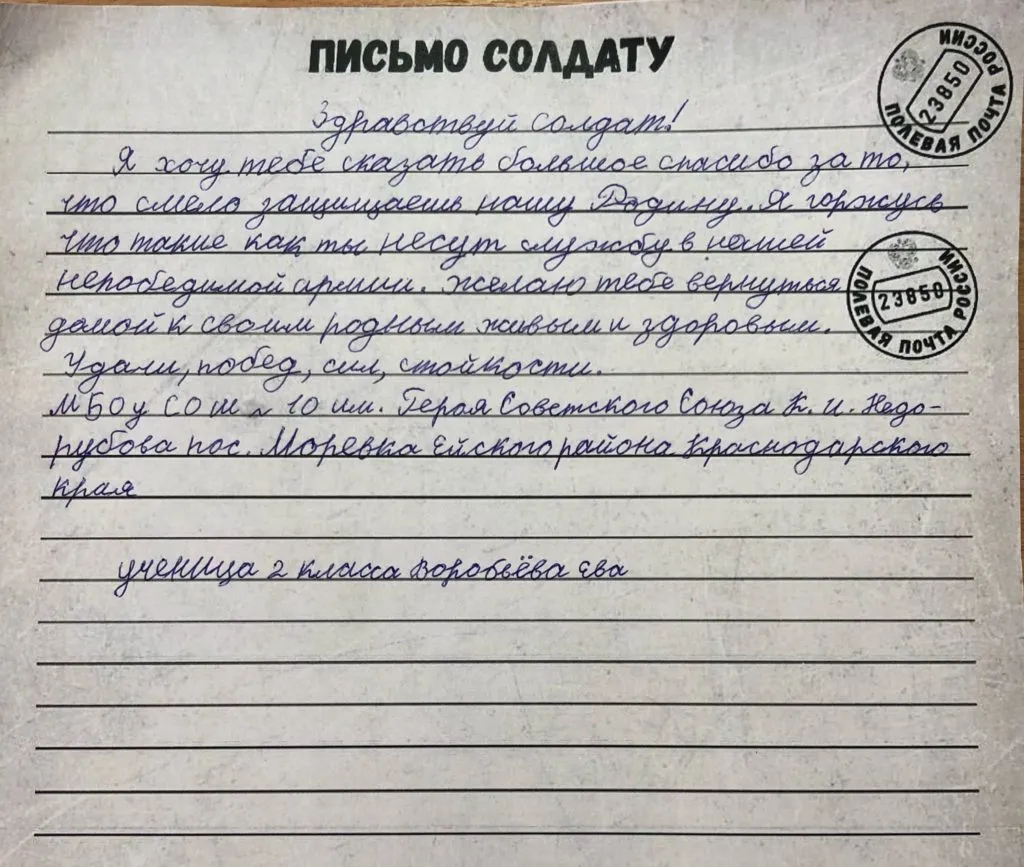 ПИСЬМО СОЛДАТУ
Здравствуй солдат!
Я хочу тебе сказать большое спасибо за то,
что смело защищаешь нашу Родину. Я горжусь
что такие как ты несут службу в нашей
непобедимой армии. Желаю тебе вернуться
домой к своим родным живым и здоровым.
Удачи, побед, сил, стойкости.
МБОУ СОШ № 10 им. Героя Советского Союза К. И. Недо-
рубова пос. Моревка Ейского района Краснодарского
края
ученица 2 класса Воробьёва Ева
ПОЛЕВАЯ ПОЧТА РОССИИ
23850
ПОЛЕВАЯ ПОЧТА РОССИИ
23850